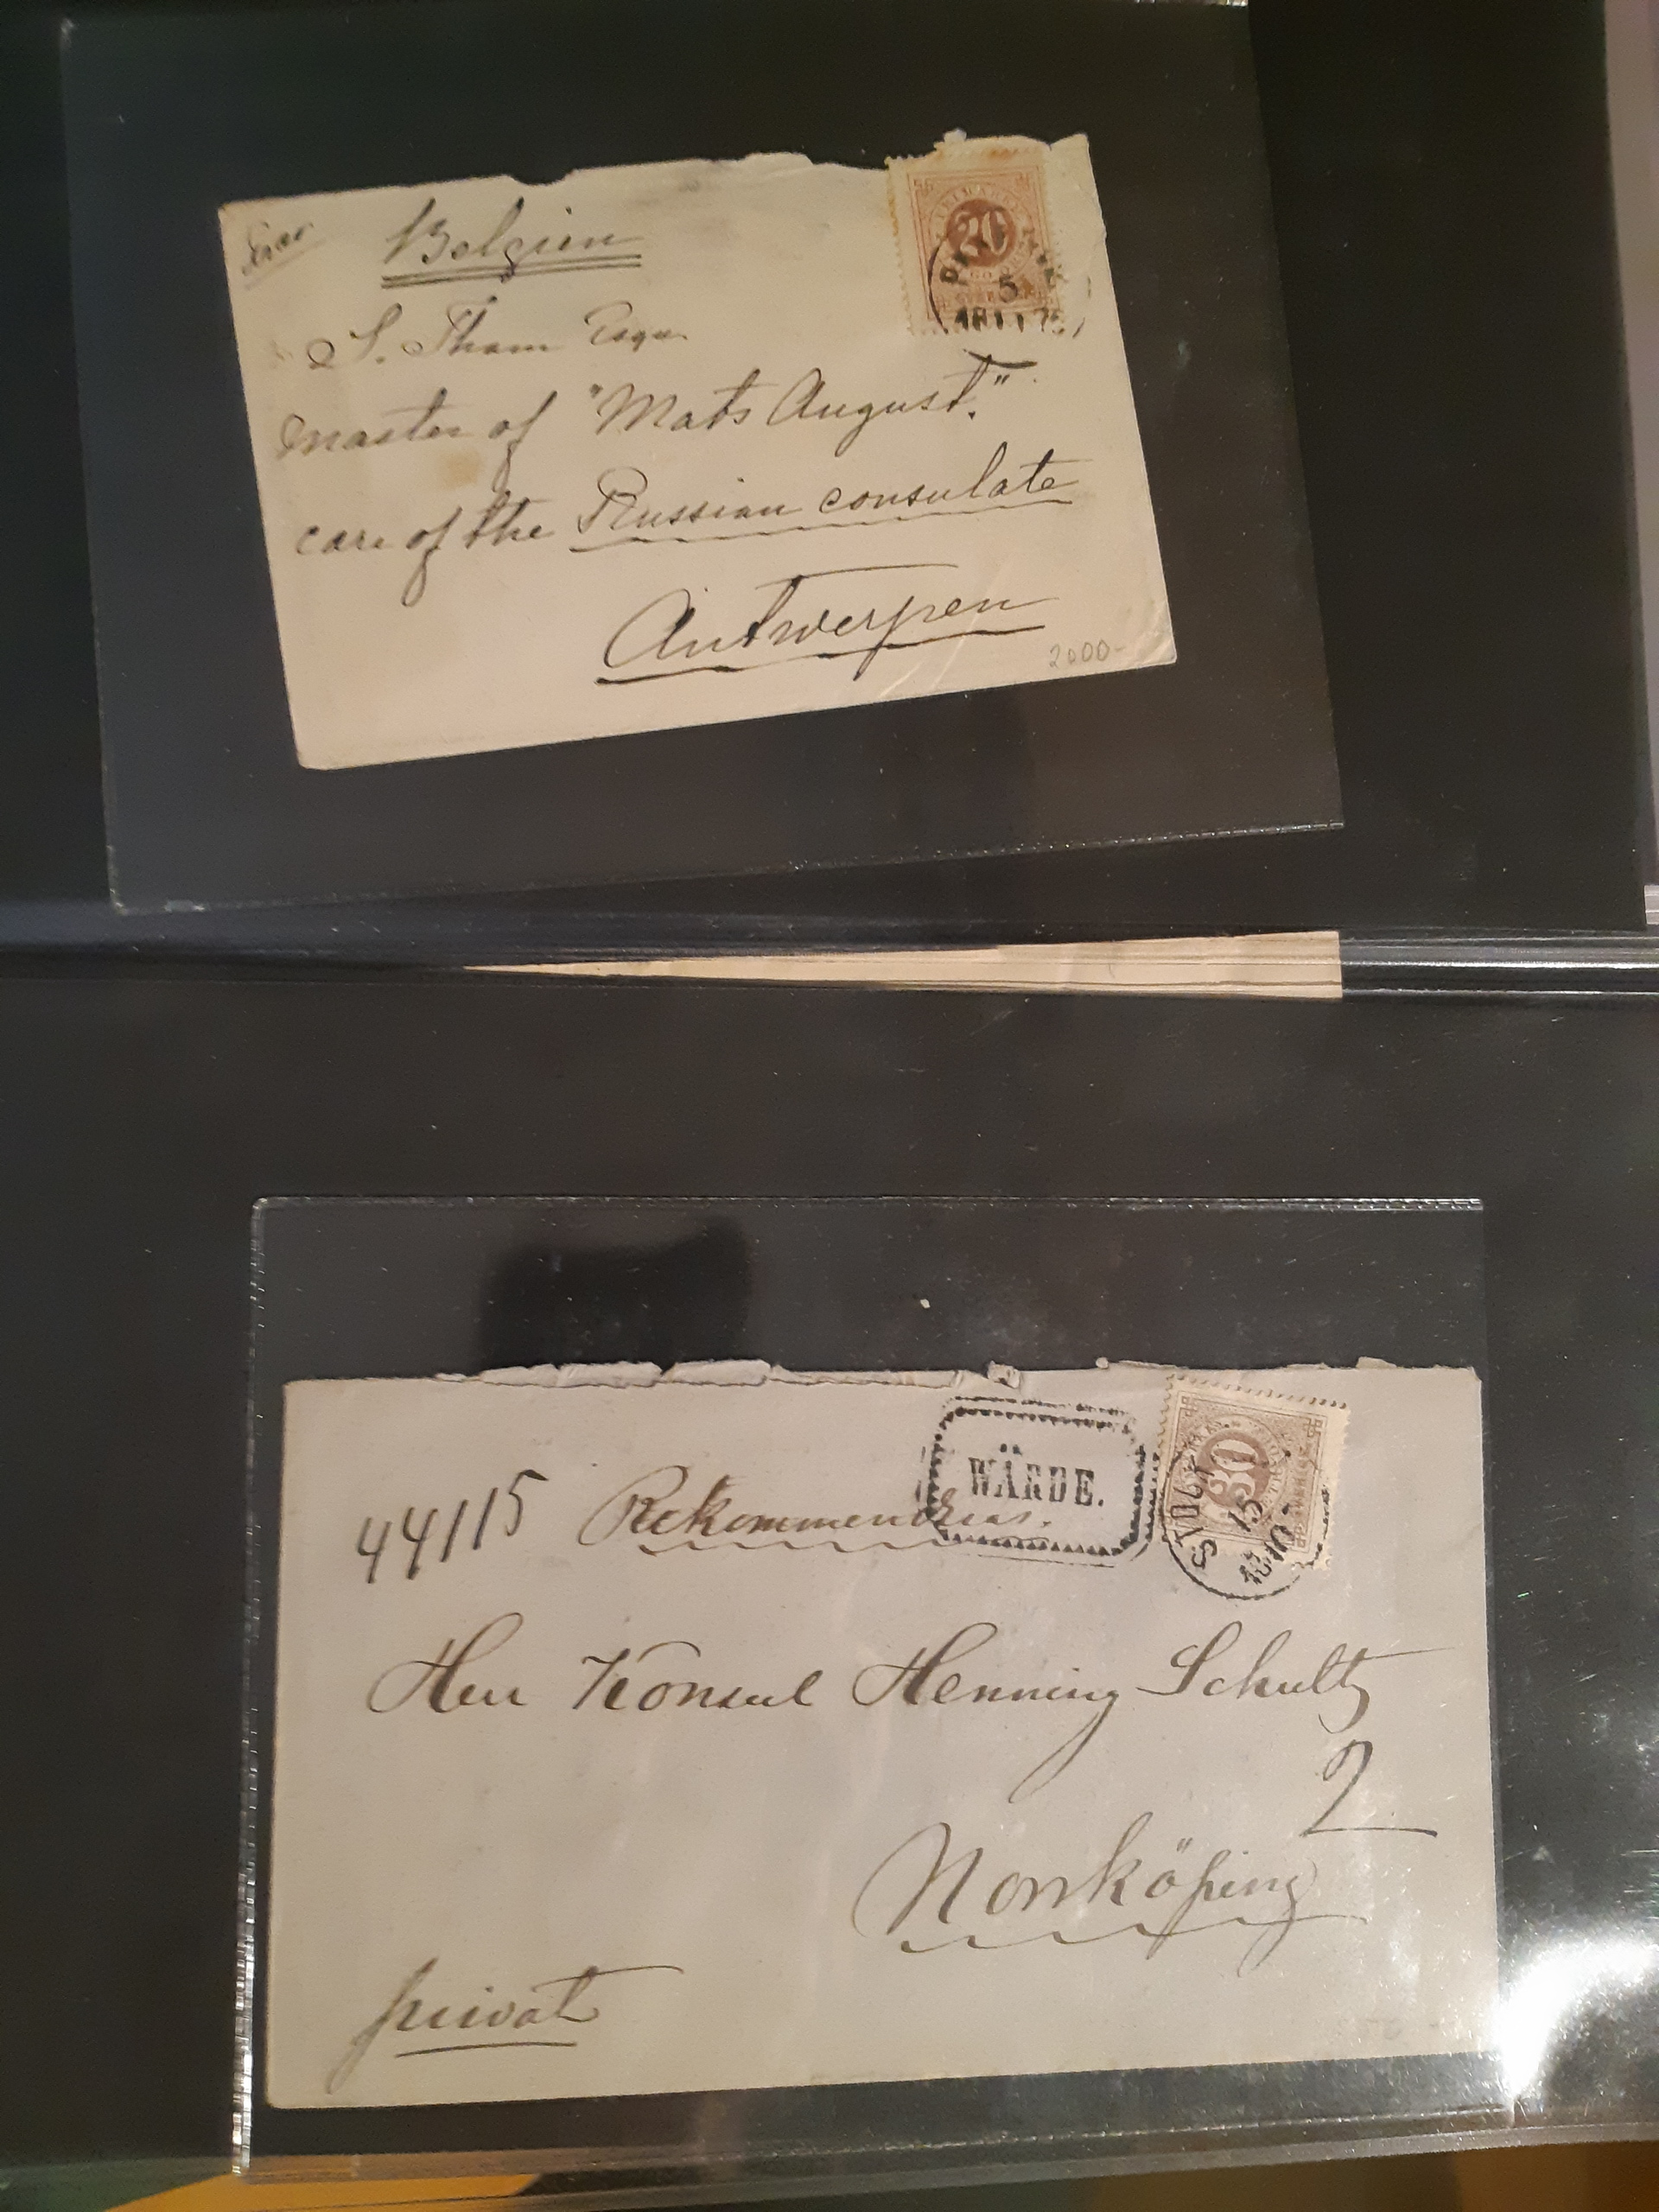 Belgien
S. Tham Esqu.
master of "Mats August."
care of the Russian consulate
Antwerpen
2000-
20
5
30
WÄRDE.
44115 Rekommenderas.
15
Herr Konsul Henning Schultz
2
Norrköping
privat